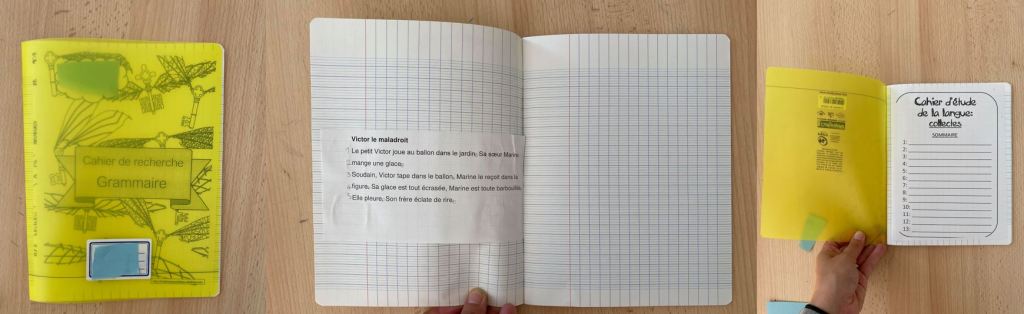 Cahier de recherche
Grammaire
Victor le maladroit
1 Le petit Victor joue au ballon dans le jardin. Sa sœur Marine
2 mange une glace.
3 Soudain, Victor tape dans le ballon, Marine le reçoit dans la
4 figure. Sa glace est tout écrasée, Marine est toute barbouillée.
5 Elle pleure. Son frère éclate de rire.
Cahier d'étude
de la langue:
collectes
SOMMAIRE
1:
2:
3:
4:
5:
6:
7:
8:
9:
10:
11:
12:
13: